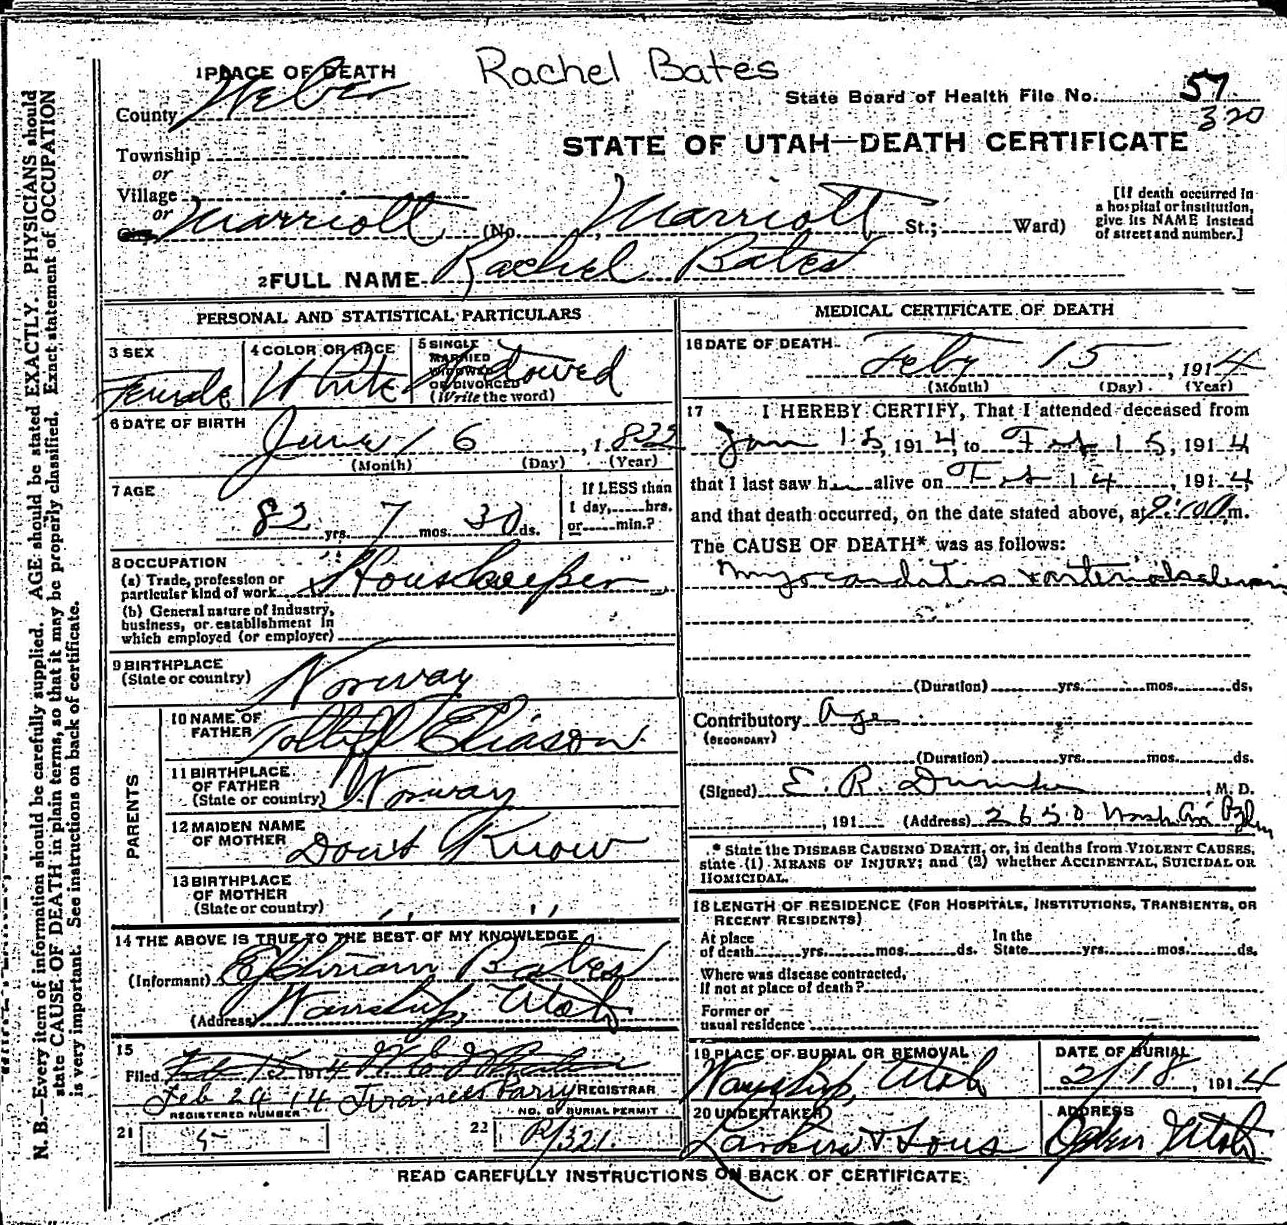 Rachel Bates
1 PLACE OF DEATH
County Weber
State Board of Health File No. 57
320
STATE OF UTAH—DEATH CERTIFICATE
Township
or
Village
or
City Marriott (No. Marriott St.; Ward)
[If death occurred in
a hospital or institution,
give its NAME instead
of street and number.]
2 FULL NAME Rachel Bates
PERSONAL AND STATISTICAL PARTICULARS
3 SEX
Female
4 COLOR OR RACE
White
5 SINGLE
MARRIED
WIDOWED
OR DIVORCED
(Write the word)
Widowed
6 DATE OF BIRTH
June 16, 1832
(Month) (Day) (Year)
7 AGE
82 yrs. 7 mos. 30 ds.
If LESS than
1 day, hrs.
or min.?
8 OCCUPATION
(a) Trade, profession or
particular kind of work Housekeeper
(b) General nature of Industry,
business, or establishment in
which employed (or employer)
9 BIRTHPLACE
(State or country)
Norway
PARENTS
10 NAME OF
FATHER
Eliason
11 BIRTHPLACE
OF FATHER
(State or country) Norway
12 MAIDEN NAME
OF MOTHER
Dont Know
13 BIRTHPLACE
OF MOTHER
(State or country)
" "
14 THE ABOVE IS TRUE TO THE BEST OF MY KNOWLEDGE
(Informant) Ephriam Bates
(Address) Wanship, Utah
15
Filed Feb 15 1914
Feb 24 14 Frances Parry REGISTRAR
REGISTERED NUMBER
21 5
NO. OF BURIAL PERMIT
22 R/321
MEDICAL CERTIFICATE OF DEATH
16 DATE OF DEATH
Feby 15, 1914
(Month) (Day) (Year)
17 I HEREBY CERTIFY, That I attended deceased from
Jan 15, 1914, to Feb 15, 1914
that I last saw h alive on Feb 14, 1914,
and that death occurred, on the date stated above, at 9:00 m.
The CAUSE OF DEATH* was as follows:
Myocarditis
(Duration) yrs. mos. ds.
Contributory Age
(SECONDARY)
(Duration) yrs. mos. ds.
(Signed) E. R. M. D.
, 191 (Address) 2650 Wash
* State the DISEASE CAUSING DEATH, or, in deaths from VIOLENT CAUSES,
state (1) MEANS OF INJURY; and (2) whether ACCIDENTAL, SUICIDAL OR
HOMICIDAL.
18 LENGTH OF RESIDENCE (FOR HOSPITALS, INSTITUTIONS, TRANSIENTS, OR
RECENT RESIDENTS)
At place
of death yrs. mos. ds.
In the
State yrs. mos. ds.
Where was disease contracted,
If not at place of death?
Former or
usual residence
19 PLACE OF BURIAL OR REMOVAL
Wanship, Utah
DATE OF BURIAL
2/18, 1914
20 UNDERTAKER
Larkin & Sons
ADDRESS
Ogden Utah
READ CAREFULLY INSTRUCTIONS ON BACK OF CERTIFICATE.
N. B.—Every item of information should be carefully supplied. AGE should be stated EXACTLY. PHYSICIANS should
state CAUSE OF DEATH in plain terms, so that it may be properly classified. Exact statement of OCCUPATION
is very important. See instructions on back of certificate.